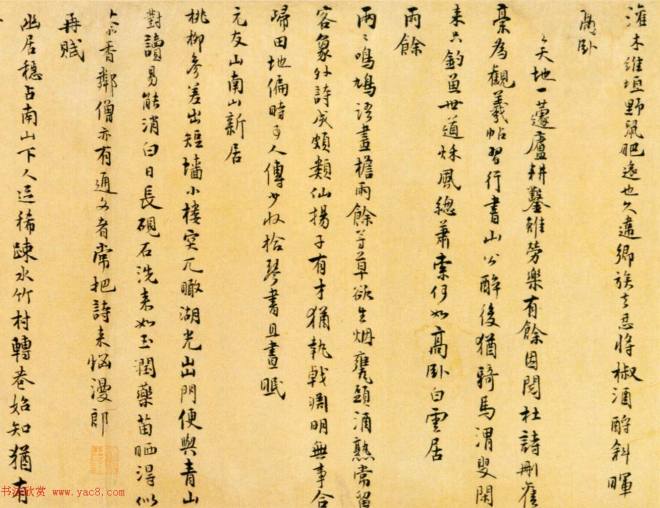 灌木維垣野鼠肥遠也久違鄉族言忍將椒酒酹斜暉
高卧
天地一蘧廬耕鑿雖勞樂有餘因閱杜詩刪舊
稾為觀羲帖習行書山公醉後猶騎馬渭叟閑
來只釣魚世道秋風總蕭索何如高卧白雲居
雨餘
兩兩鳴鳩語畫檐雨餘芳草欲生烟甕頭酒熟常留
客象外詩成頗類仙揚子有才猶執戟淵明無事合
歸田地偏時與人傳少收拾琴書且晝眠
元友山南山新居
桃柳參差出短墻小樓突兀瞰湖光出門便與青山
對讀易能消白日長硯石洗來如玉潤藥苗晒得似
香鄰僧亦有通文者常把詩來惱漫郎
再賦
幽居穩占南山下人迹稀疎水竹村轉巷始知猶有
书法欣赏 www.yac8.com